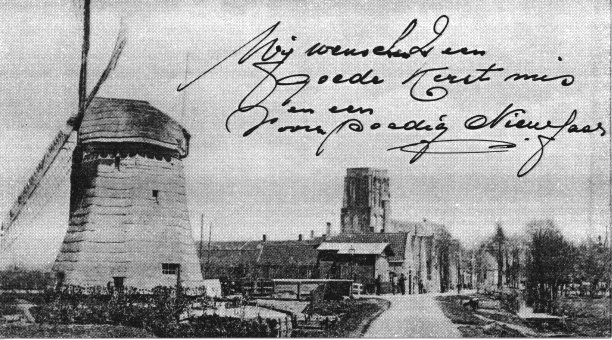 Wij wenschen U een
goede Kerst mis
en een
voorspoedig Nieuwjaar